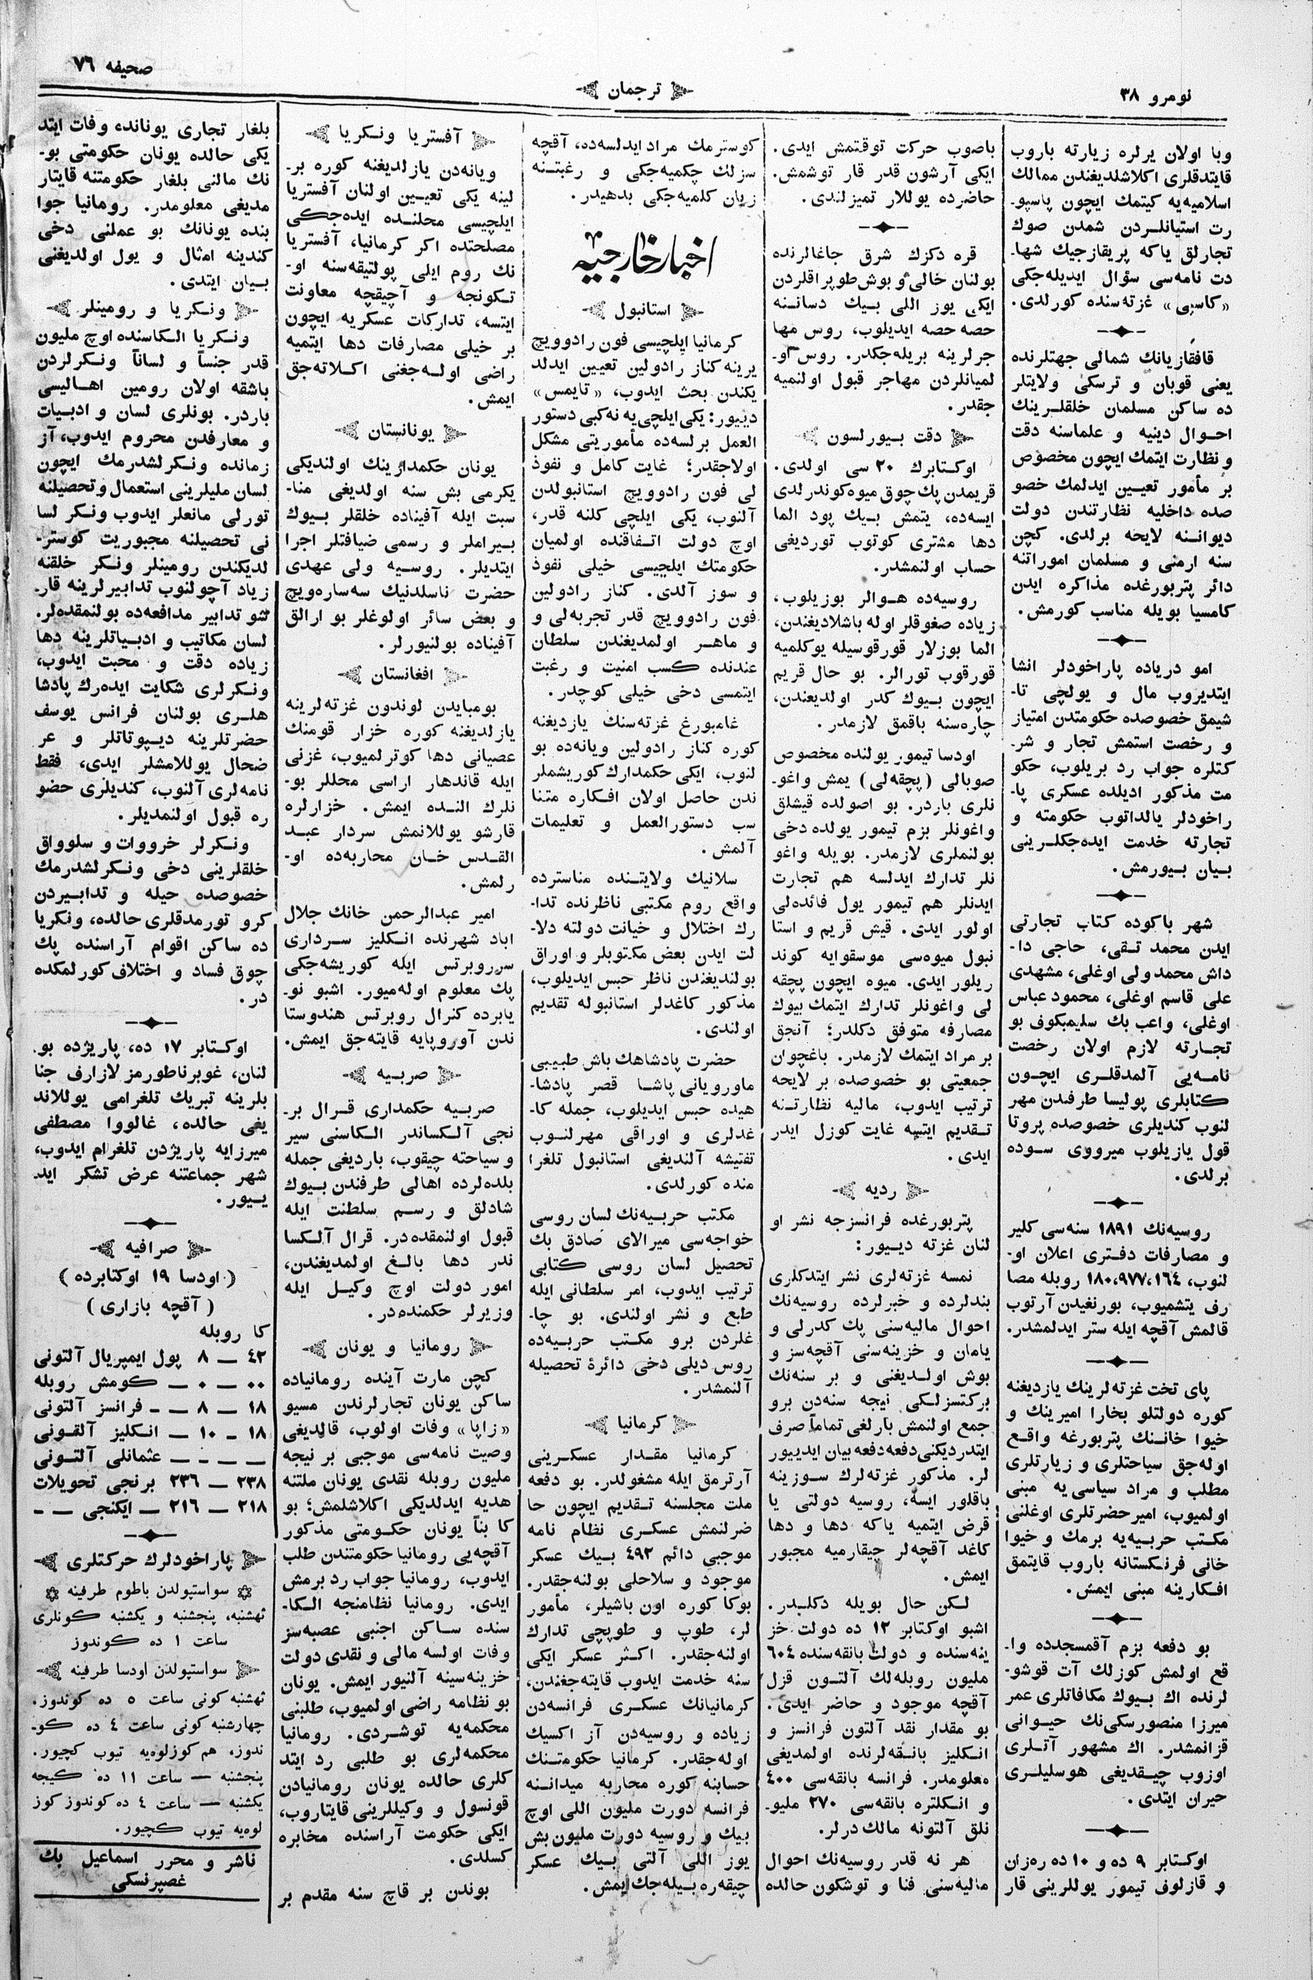 نومرو ٣٨
ترجمان
صحيفه ٧٦
وبا اولان يرلره زيارته باروب
قايتدقلری اكلاشلديغندن ممالك
اسلاميه‌يه كيتمك ايچون پاسپو-
رت استيانلردن شمدن صوك
تجارلق ياكه پريقازجيك شها-
دت نامه‌سی سؤال ايديله‌جكی
«كاسپی» غزته‌سنده كورلدی.
قافقازيانك شمالی جهتلرنده
يعنی قوبان و ترسكی ولايتلر
ده ساكن مسلمان خلقلرينك
احوال دينيه و علماسنه دقت
و نظارت ايتمك ايچون مخصوص
بر مأمور تعيين ايدلمك خصو
صده داخليه نظارتندن دولت
ديواننه لايحه برلدی. كچن
سنه ارمنی و مسلمان اموراتنه
دائر پتربورغده مذاكره ايدن
كامسيا بويله مناسب كورمش.
امو درياده پاراخودلر انشا
ايتديروب مال و يولچی تا-
شيمق خصوصده حكومتدن امتياز
و رخصت استمش تجار و شر-
كتلره جواب رد بريلوب، حكو
مت مذكور اديلده عسكری پا-
راخودلر يالداتوب حكومته و
تجارته خدمت ايده‌جكلرينی
بيان بيورمش.
شهر باكوده كتاب تجارتی
ايدن محمد تقی، حاجی دا-
داش محمد ولی اوغلی، مشهدی
علی قاسم اوغلی، محمود عباس
اوغلی، واعب بك سليمبكوف بو
تجارته لازم اولان رخصت
نامه‌يی آلمدقلری ايچون
كتابلری پوليسا طرفندن مهر
لنوب كنديلری خصوصده پروتا
قول يازيلوب ميرووی سوده
برلدی.
روسيه‌نك ١٨٩١ سنه‌سی كلير
و مصارفات دفتری اعلان او-
لنوب، ١٨٠،٩٧٧،١٦٤ روبله مصا
رف يتشميوب، بورنغيدن آرتوب
قالمش آقچه ايله ستر ايدلمشدر.
پای تخت غزته‌لرينك يازديغنه
كوره دولتلو بخارا اميرينك و
خيوا خاننك پتربورغه واقع
اوله‌جق سياحتلری و زيارتلری
مطلب و مراد سياسی‌يه مبنی
اولميوب، امير حضرتلری اوغلنی
مكتب حربيه‌يه برمك و خيوا
خانی فرنكستانه باروب قايتمق
افكارينه مبنی ايمش.
بو دفعه بزم آقمسجدده وا-
قع اولمش كوزلك آت قوشو-
لرنده اك بيوك مكافاتلری عمر
ميرزا منصورسكی‌نك حيوانی
قزانمشدر. اك مشهور آتلری
اوزوب چيقديغی هوسليلری
حيران ايتدی.
اوكتابر ٩ ده و ١٠ ده ره‌زان
و قازلوف تيمور يوللرينی قار
باصوب حركت توقتمش ايدی.
ايكی آرشون قدر قار توشمش.
حاضرده يوللار تميزلندی.
قره دكزك شرق جاغالرنده
بولنان خالی و بوش طوپراقلردن
ايكی يوز اللی بيك دساتنه
حصه حصه ايديلوب، روس مها
جرلرينه بريله‌جكدر. روس او-
لميانلردن مهاجر قبول اولنميه
جقدر.
دقت بيورلسون
اوكتابرك ٢٠ سی اولدی.
قريمدن پك چوق ميوه كوندرلدی
ايسه‌ده، يتمش بيك پود الما
دها مشتری كوتوب تورديغی
حساب اولنمشدر.
روسيه‌ده هوالر بوزيلوب،
زياده صغوقلر اوله باشلاديغندن،
الما بوزلار قورقوسيله يوكلميه
قورقوب تورالر. بو حال قريم
ايچون بيوك كدر اولديغندن،
چاره‌سنه باقمق لازمدر.
اودسا تيمور يولنده مخصوص
صوبالی (پچقه‌لی) يمش واغو-
نلری باردر. بو اصولده قيشلق
واغونلر بزم تيمور يولده دخی
بولنملری لازمدر. بويله واغو
نلر تدارك ايدلسه هم تجارت
ايدنلر هم تيمور يول فائده‌لی
اولور ايدی. قيش قريم و استا
نبول ميوه‌سی موسقوايه كوند
ريلور ايدی. ميوه ايچون پچقه
لی واغونلر تدارك ايتمك بيوك
مصارفه متوقف دكلدر؛ آنجق
بر مراد ايتمك لازمدر. باغچوان
جمعيتی بو خصوصده بر لايحه
ترتيب ايدوب، ماليه نظارتنه
تقديم ايتسه غايت كوزل ايدر
ايدی.
رديه
پتربورغده فرانسزجه نشر او
لنان غزته ديور:
نمسه غزته‌لری نشر ايتدكلری
بندلرده و خبرلرده روسيه‌نك
احوال ماليه‌سنی پك كدرلی و
يامان و خزينه‌سنی آقچه‌سز و
بوش اولديغنی و بر سنه‌نك
بركتسزلكی نيجه سنه‌دن برو
جمع اولنمش بارلغی تماماً صرف
ايتدرديكنی دفعه دفعه بيان ايدييور
لر. مذكور غزته‌لرك سوزينه
باقلور ايسه، روسيه دولتی يا
قرض ايتميه ياكه دها و دها
كاغد آقچه‌لر چيقارميه مجبور
ايمش.
لكن حال بويله دكلدر.
اشبو اوكتابر ١٢ ده دولت خز
ينه‌سنده و دولت بانقه‌سنده ٦٠٤
مليون روبله‌لك آلتون قزل
آقچه موجود و حاضر ايدی.
بو مقدار نقد آلتون فرانسز و
انكليز بانقه‌لرنده اولمديغی
معلومدر. فرانسه بانقه‌سی ٤٠٠
و انكلتره بانقه‌سی ٢٧٠ مليو-
نلق آلتونه مالك درلر.
هر نه قدر روسيه‌نك احوال
ماليه‌سنی فنا و توشكون حالده
كوسترمك مراد ايدلسه‌ده، آقچه
سزلك چكميه‌جكی و رغبتنه
زيان كلميه‌جكی بدهيدر.
اخبار خارجيه
استانبول
كرمانيا ايلچيسی فون رادوويچ
يرينه كناز رادولين تعيين ايدلد
يكندن بحث ايدوب، «تايمس»
دييور: يكی ايلچی‌يه نه‌كبی دستور
العمل برلسه‌ده مأموريتی مشكل
اولاجقدر؛ غايت كامل و نفوذ
لی فون رادوويچ استانبولدن
آلنوب، يكی ايلچی كلنه قدر،
اوچ دولت اتفاقنده اولميان
حكومتك ايلچيسی خيلی نفوذ
و سوز آلدی. كناز رادولين
فون رادوويچ قدر تجربه‌لی و
و ماهر اولمديغندن سلطان
عندنده كسب امنيت و رغبت
ايتمسی دخی خيلی كوچدر.
غامبورغ غزته‌سنك يازديغنه
كوره كناز رادولين ويانه‌ده بو
لنوب، ايكی حكمدارك كوريشملر
ندن حاصل اولان افكاره متنا
سب دستورالعمل و تعليمات
آلمش.
سلانيك ولايتنده مناسترده
واقع روم مكتبی ناظرنده تدا-
رك اختلال و خيانت دولته دلا-
لت ايدن بعض مكتوبلر و اوراق
بولنديغندن ناظر حبس ايديلوب،
مذكور كاغدلر استانبوله تقديم
اولندی.
حضرت پادشاهك باش طبيبی
ماوروياني پاشا قصر پادشا-
هيده حبس ايديلوب، جمله كا-
غدلری و اوراقی مهرلنوب
تفتيشه آلنديغی استانبول تلغرا
منده كورلدی.
مكتب حربيه‌نك لسان روسی
خواجه‌سی ميرالای صادق بك
تحصيل لسان روسی كتابی
ترتيب ايدوب، امر سلطانی ايله
طبع و نشر اولندی. بو چا-
غلردن برو مكتب حربيه‌ده
روس ديلی دخی دائرهٔ تحصيله
آلنمشدر.
كرمانيا
كرمانيا مقدار عسكرينی
آرترمق ايله مشغولدر. بو دفعه
ملت مجلسنه تقديم ايچون حا
ضرلنمش عسكری نظام نامه
موجبی دائم ٤٩٢ بيك عسكر
موجود و سلاحلی بولنه‌جقدر.
بوكا كوره اون باشيلر، مأمور
لر، طوپ و طوپچی تدارك
اولنه‌جقدر. اكثر عسكر ايكی
سنه خدمت ايدوب قايته‌جغندن،
كرمانيانك عسكری فرانسه‌دن
زياده و روسيه‌دن آز اكسيك
اوله‌جقدر. كرمانيا حكومتنك
حسابنه كوره محاربه ميداننه
فرانسه دورت مليون اللی اوچ
بيك و روسيه دورت مليون بش
يوز اللی آلتی بيك عسكر
چيقه‌ره بيله‌جك ايمش.
آفستريا ونكريا
ويانه‌دن يازلديغنه كوره بر-
لينه يكی تعيين اولنان آفستريا
ايلچيسی محلنده ايده‌جكی
مصلحتده اكر كرمانيا، آفستريا
نك روم ايلی پولتيقه‌سنه او-
تكونجه و آچيقچه معاونت
ايتسه، تداركات عسكريه ايچون
بر خيلی مصارفات دها ايتميه
راضی اوله‌جغنی اكلاته‌جق
ايمش.
يونانستان
يونان حكمدارينك اولنديكی
يكرمی بش سنه اولديغی منا-
سبت ايله آفيناده خلقلر بيوك
بيراملر و رسمی ضيافتلر اجرا
ايتديلر. روسيه ولی عهدی
حضرت ناسلدنيك سه‌ساره‌ويچ
و بعض سائر اولوغلر بو ارالق
آفيناده بولنيورلر.
افغانستان
بومبايدن لوندون غزته‌لرينه
يازلديغنه كوره خزار قومنك
عصيانی دها كوترلميوب، غزنی
ايله قاندهار اراسی محللر بو-
نلرك النده ايمش. خزارلره
قارشو يوللانمش سردار عبد
القدس خان محاربه‌ده او-
رلمش.
امير عبدالرحمن خانك جلال
اباد شهرنده انكليز سرداری
سر روبرتس ايله كوريشه‌جكی
پك معلوم اوله‌ميور. اشبو نو-
يابرده كنرال روبرتس هندوستا
ندن آوروپايه قايته‌جق ايمش.
صربيه
صربيه حكمداری قرال بر-
نجی آلكساندر الكاسنی سير
و سياحته چيقوب، بارديغی جمله
بلده‌لرده اهالی طرفندن بيوك
شادلق و رسم سلطنت ايله
قبول اولنمقده‌در. قرال آلكسا
ندر دها بالغ اولمديغندن،
امور دولت اوچ وكيل ايله
وزيرلر حكمنده‌در.
رومانيا و يونان
كچن مارت آينده رومانياده
ساكن يونان تجارلرندن مسيو
«زاپا» وفات اولوب، قالديغی
وصيت نامه‌سی موجبی بر نيجه
مليون روبله نقدی يونان ملتنه
هديه ايدلديكی اكلاشلمش؛ بو
كا بناً يونان حكومتی مذكور
آقچه‌يی رومانيا حكومتندن طلب
ايدوب، رومانيا جواب رد برمش
ايدی. رومانيا نظامنجه الكا-
سنده ساكن اجنبی عصبه‌سز
وفات اولسه مالی و نقدی دولت
خزينه‌سينه آلنيور ايمش. يونان
بو نظامه راضی اولميوب، طلبنی
محكمه‌يه توشردی. رومانيا
محكمه‌لری بو طلبی رد ايتد
كلری حالده يونان رومانيادن
قونسول و وكيللرينی قايتاروب،
ايكی حكومت آراسنده مخابره
كسلدی.
بوندن بر قاچ سنه مقدم بر
بلغار تجاری يوناندە وفات ايتد
يكی حالده يونان حكومتی بو-
نك مالنی بلغار حكومتنه قايتار
مديغی معلومدر. رومانيا جوا
بنده يونانك بو عملنی دخی
كندينه امثال و يول اولديغنی
بيان ايتدی.
ونكريا و رومينلر
ونكريا الكاسنده اوچ مليون
قدر جنساً و لساناً ونكرلردن
باشقه اولان رومين اهاليسی
باردر. بونلری لسان و ادبيات
و معارفدن محروم ايدوب، آز
زمانده ونكرلشدرمك ايچون
لسان مليلرينی استعمال و تحصيلنه
تورلی مانعلر ايدوب ونكر لسا
نی تحصيلنه مجبوريت كوستر-
لديكندن رومينلر ونكر خلقنه
زياد آچولنوب تدابيرلرينه قار-
شو تدابير مدافعه‌ده بولنمقده‌لر.
لسان مكاتيب و ادبياتلرينه دها
زياده دقت و محبت ايدوب،
ونكرلری شكايت ايده‌رك پادشا
هلری بولنان فرانس يوسف
حضرتلرينه ديپوتاتلر و عر
ضحال يوللامشلر ايدی، فقط
نامه‌لری آلنوب، كنديلری حضو
ره قبول اولنمديلر.
ونكرلر خرووات و سلوواق
خلقلرينی دخی ونكرلشدرمك
خصوصده حيله و تدابيردن
كرو تورمدقلری حالده، ونكريا
ده ساكن اقوام آراسنده پك
چوق فساد و اختلاف كورلمكده
در.
اوكتابر ١٧ ده، پاريژده بو
لنان، غوبرناطورمز لازارف جنا
بلرينه تبريك تلغرامی يوللاند
يغی حالده، غالووا مصطفی
ميرزايه پاريژدن تلغرام ايدوب،
شهر جماعتنه عرض تشكر ايد
ييور.
صرافيه
(اودسا ١٩ اوكتابرده)
(آقچه بازاری)
كا روبله
٤٢ — ٨ پول ايمپريال آلتونی
٠٠ — ٠ — كومش روبله
١٨ — ٨ — فرانسز آلتونی
١٨ - ١٠ — انكليز آلتونی
— — - — عثمانلی آلتونی
٢٣٨ — ٢٣٦ برنجی تحويلات
٢١٨ — ٢١٦ — ايكنجی — -
پاراخودلرك حركتلری
سواستپولدن باطوم طرفينه
ثهشنبه، پنجشنبه و يكشنبه كونلری
ساعت ١ ده كوندوز
سواستپولدن اودسا طرفينه
ثهشنبه كونی ساعت ٥ ده كوندوز.
چهارشنبه كونی ساعت ٤ ده كو-
ندوز. هم كوزلوه‌يه تيوب كچيور.
پنجشنبه — ساعت ١١ ده كيجه
يكشنبه — ساعت ٤ ده كوندوز كوز
لوه‌يه تيوب كچيور.
ناشر و محرر اسماعيل بك
غصپرنسكی